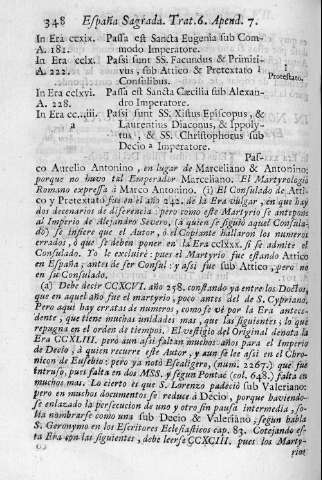 348 España Sagrada. Trat. 6. Apend. 7.
In Era ccxix. Passa est Sancta Eugenia sub Com-
A. 181. modo Imperatore.
In Era cclx. Passi sunt SS. Facundus & Primiti-
A. 222. vus, sub Attico & Pretextato i
Consulibus. Protestato.
In Era cclxvi. Passa est Sancta Cæcilia sub Alexan-
A. 228. dro Imperatore.
In Era cc...iii. Passi sunt SS. Xistus Episcopus, &
a Laurentius Diaconus, & Ippoly-
tus, & SS. Christophorus sub
Decio a Imperatore.
Pas-
co Aurelio Antonino, en lugar de Marceliano & Antonino;
porque no havo tal Emperador Marceliano. El Martyrologio
Romano expressa à Marco Antonino. (i) El Consulado de Atti-
co y Pretextato fue en el año 242. de la Era vulgar, en que hay
dos decenarios de diferencia: pero como este Martyrio se antepone
al Imperio de Alejandro Severo, (à quien se siguiò aquel Consula-
do) se infiere que el Autor, ò el Copiante hallaron los numeros
errados, ò que se deben poner en la Era cclxxx. si se admite el
Consulado. Yo le excluirè: pues el Martyrio fue estando Attico
en España, antes de ser Consul: y assi fue sub Attico, pero no
en su Consulado.
(a) Debe decir CCXCVI. año 258. constando ya entre los Doctos,
que en aquel año fue el martyrio, poco antes del de S. Cypriano.
Pero aqui hay erratas de numeros, como se vè por la Era antece-
dente, que tiene muchas unidades mas, que las siguientes, lo que
repugna en el orden de tiempos. El vestigio del Original denota la
Era CCXLIII. pero aun assi faltan muchos años para el Imperio
de Decio, à quien recurre este Autor, y aun se lee assi en el Chro-
nicon de Eusebio: pero ya notò Escaligero, (num. 2267.) que fue
intruso, pues falta en dos MSS. y segun Pontac (col. 648.) falta en
muchos mas. Lo cierto es que S. Lorenzo padeciò sub Valeriano:
pero en muchos documentos se reduce à Decio, porque haviendo-
se enlazado la persecucion de uno y otro sin pausa intermedia, so-
lia nombrarse como una sub Decio & Valeriano, segun habla
S. Geronymo en los Escritores Eclesiasticos cap. 83. Cotejando es-
ta Era con las siguientes, debe leerse CCXCIII. pues los Marty-
rios